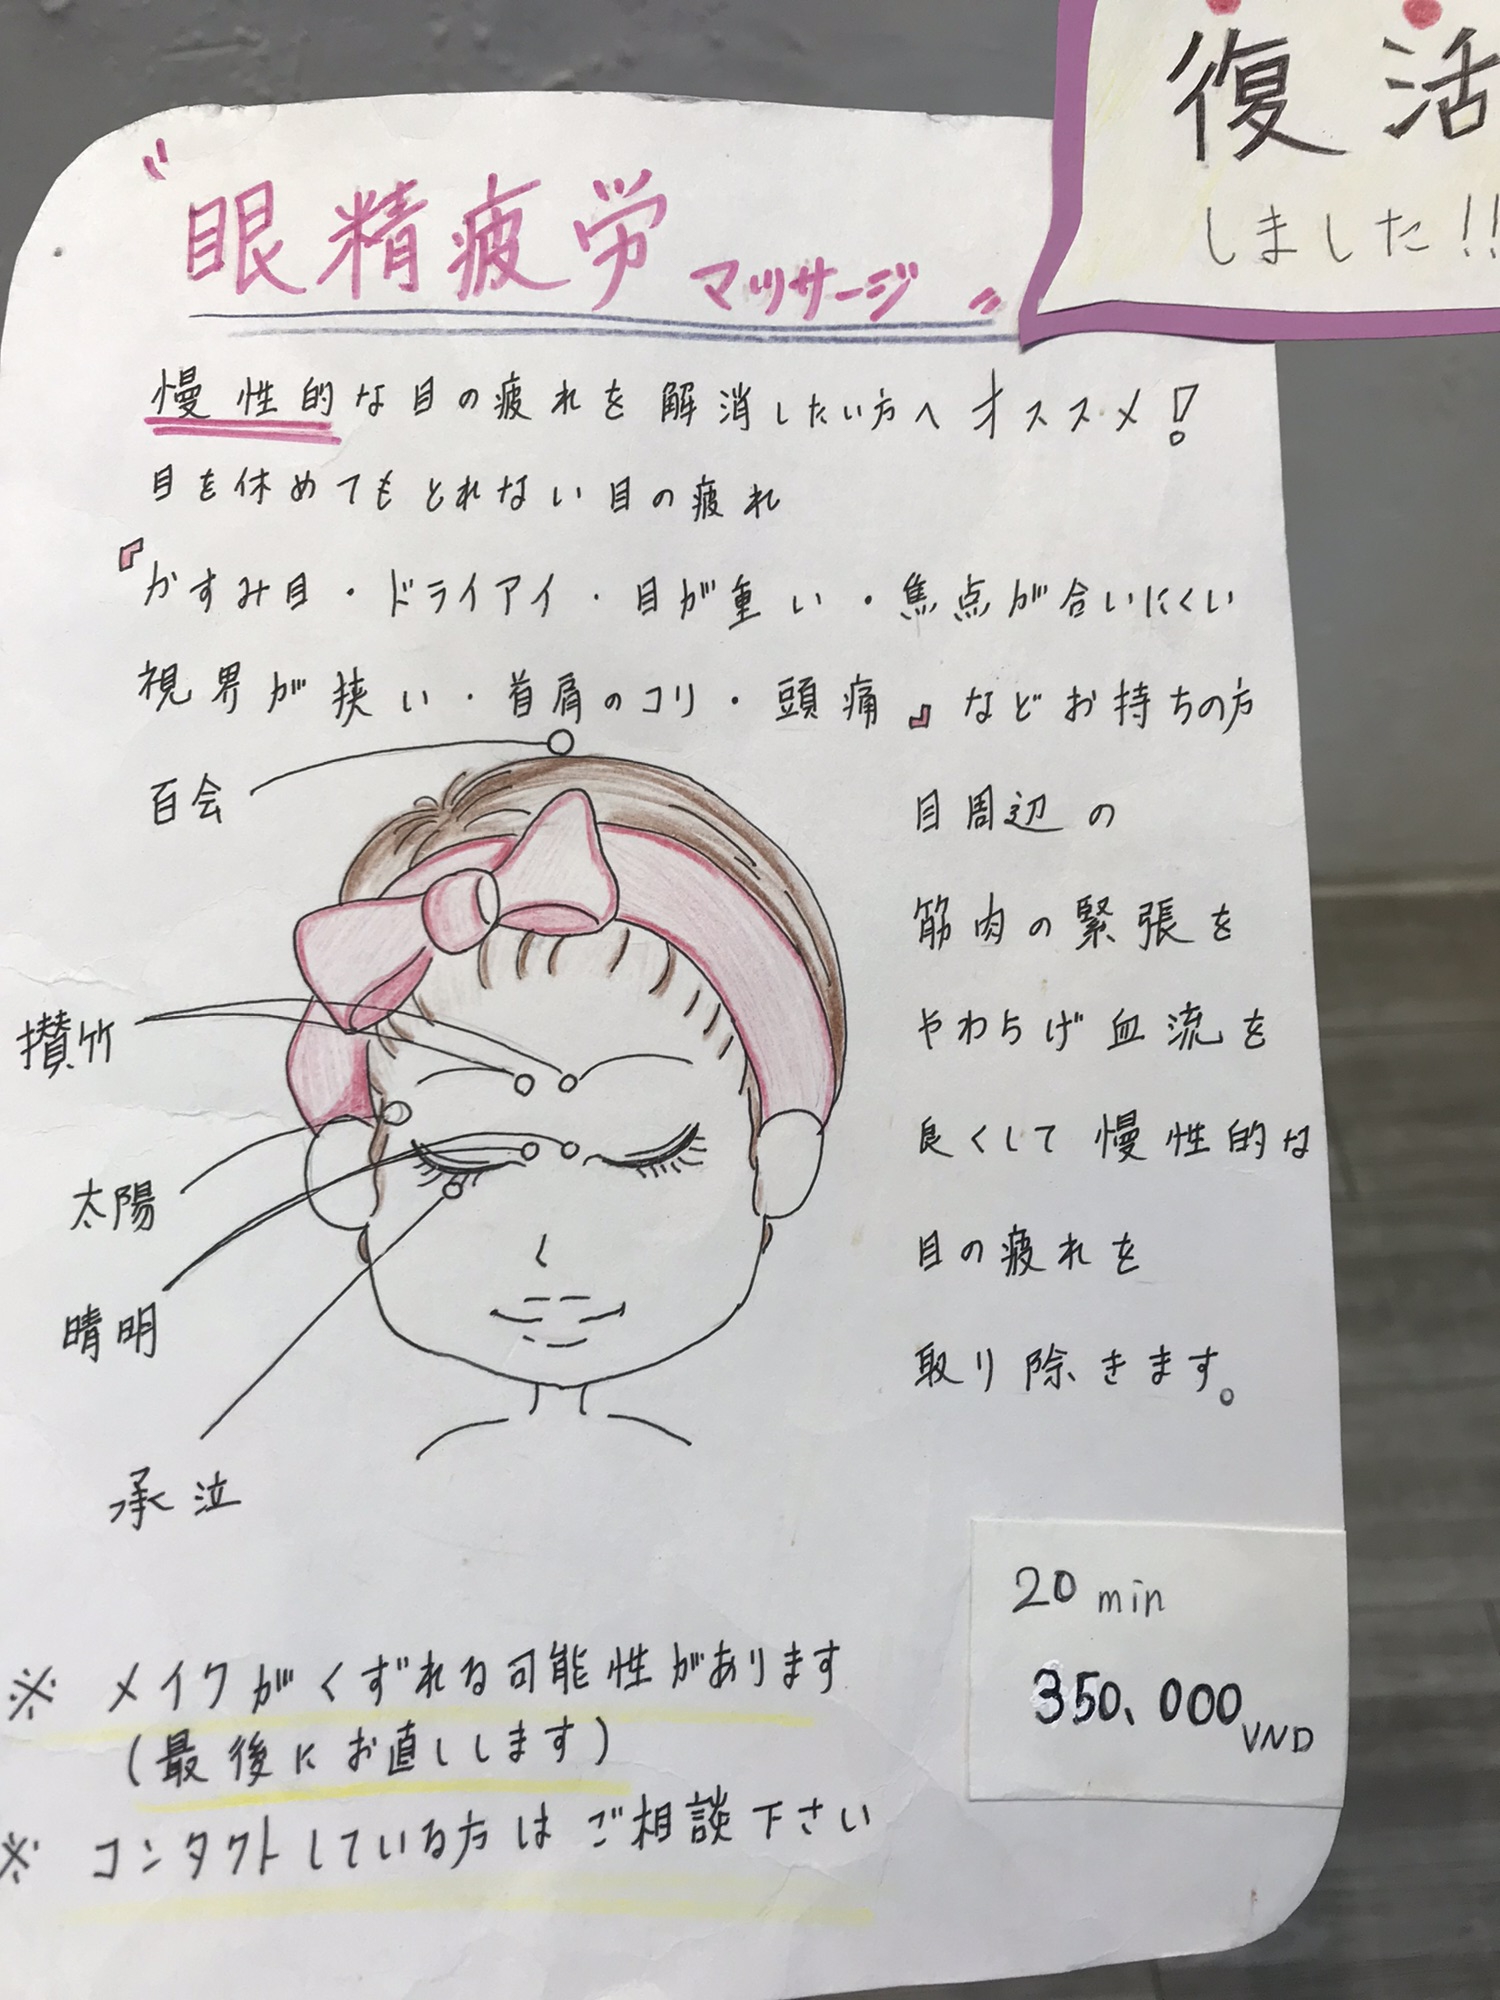 復活
しました!!
〝眼精疲労マッサージ〟
慢性的な目の疲れを解消したい方へオススメ!
目を休めてもとれない目の疲れ
『かすみ目・ドライアイ・目が重い・焦点が合いにくい
視界が狭い・首肩のコリ・頭痛』などお持ちの方
百会
攅竹
太陽
晴明
承泣
目周辺の
筋肉の緊張を
やわらげ血流を
良くして慢性的な
目の疲れを
取り除きます。
20 min
350,000 VND
※ メイクがくずれる可能性があります
(最後にお直しします)
※ コンタクトしている方はご相談下さい